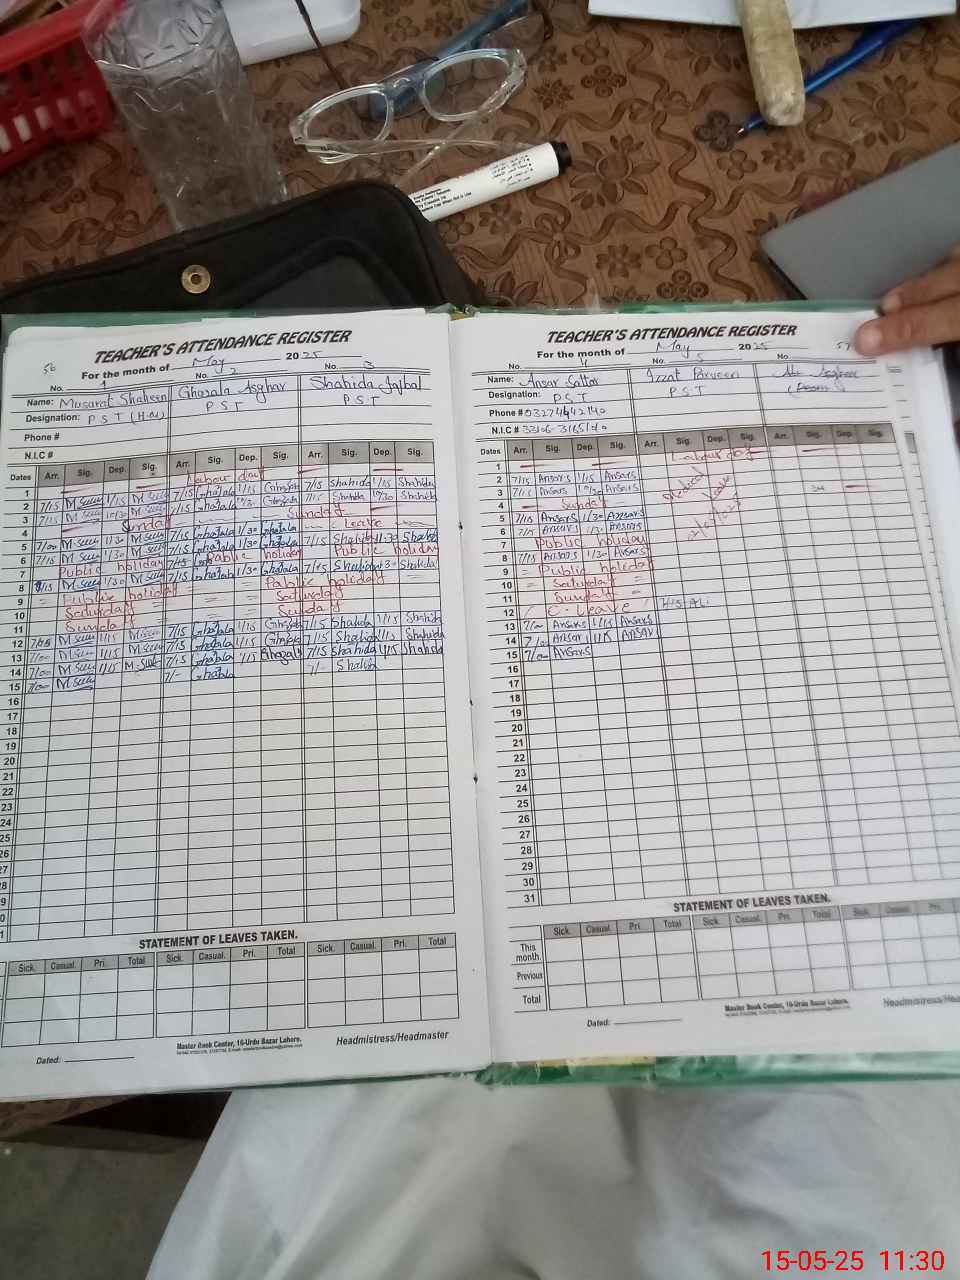 56
TEACHER'S ATTENDANCE REGISTER
For the month of May 2025
No. 1 No. 2 No. 3
Name: Musarat Shaheen Ghazala Asghar Shahida Iqbal
Designation: P S T (H.M) P S T P S T
Phone #
N.I.C #
Dates Arr. Sig. Dep. Sig. Arr. Sig. Dep. Sig. Arr. Sig. Dep. Sig.
1 Labour day
2 7/15 1/15 7/15 Ghazala 1/15 Ghazala 7/15 Shahida 1/15 Shahida
3 7/15 10/30 7/15 Ghazala 7/15 Shahida 10/30 Shahida
4 Sunday Sunday
5 7/00 1/30 7/15 Ghazala 1/30 Ghazala Leave
6 7/15 1/30 7/15 Ghazala 1/30 Ghazala 7/15 Shahida 1/30 Shahida
7 Public holiday Public holiday Public holiday
8 7/15 1/30 7/15 Ghazala 1/30 Ghazala 7/15 Shahida 1/30 Shahida
9 Public holiday Public holiday
10 Saturday Saturday
11 Sunday Sunday
12 7/05 1/15 7/15 Ghazala 1/15 Ghazala 7/15 Shahida 1/15 Shahida
13 7/00 1/15 7/15 Ghazala 1/15 Ghazala 7/15 Shahida 1/15 Shahida
14 7/00 1/15 7/15 Ghazala 1/15 Ghazala 7/15 Shahida 1/15 Shahida
15 7/00 7/- Ghazala 7/- Shahida
16
17
18
19
20
21
22
23
24
25
26
27
28
29
30
31
STATEMENT OF LEAVES TAKEN.
Sick. Casual. Pri. Total Sick. Casual. Pri. Total Sick. Casual. Pri. Total
Dated:
Master Book Center, 16-Urdu Bazar Lahore.
Headmistress/Headmaster
TEACHER'S ATTENDANCE REGISTER
57
For the month of May 2025
No. 4 No. 5 No.
Name: Ansar Sattar Izzat Parveen
Designation: P.S.T P.S.T
Phone # 03274442140
N.I.C #
Dates Arr. Sig. Dep. Sig. Arr. Sig. Dep. Sig. Arr. Sig. Dep. Sig.
1 Labour day
2 7/15 Ansars 1/15 Ansars
3 7/15 Ansars 10/30 Ansars
4 Sunday
5 7/15 Ansars 1/30 Ansars
6 7/15 Ansars 1/30 Ansars
7 Public holiday
8 7/15 Ansars 1/30 Ansars
9 Public holiday
10 Saturday
11 Sunday
12 C-Leave
13 7/00 Ansars 1/15 Ansars
14 7/00 Ansar 1/15 Ansar
15 7/00 Ansars
Medical Leave
16
17
18
19
20
21
22
23
24
25
26
27
28
29
30
31
STATEMENT OF LEAVES TAKEN.
Sick. Casual. Pri. Total Sick. Casual. Pri. Total Sick. Casual. Pri.
This month
Previous
Total
Dated:
Master Book Center, 16-Urdu Bazar Lahore.
15-05-25 11:30